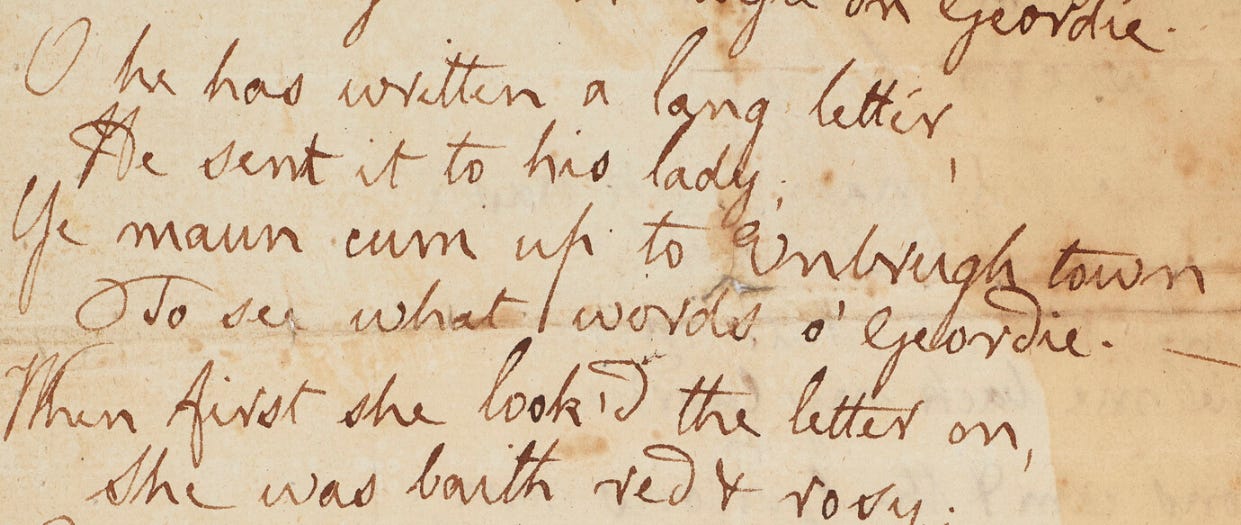 on Geordie.
O he has written a lang letter,
He sent it to his lady;
Ye maun cum up to Enbrugh town
To see what words o' Geordie.
When first she look'd the letter on,
She was baith red & rosy;